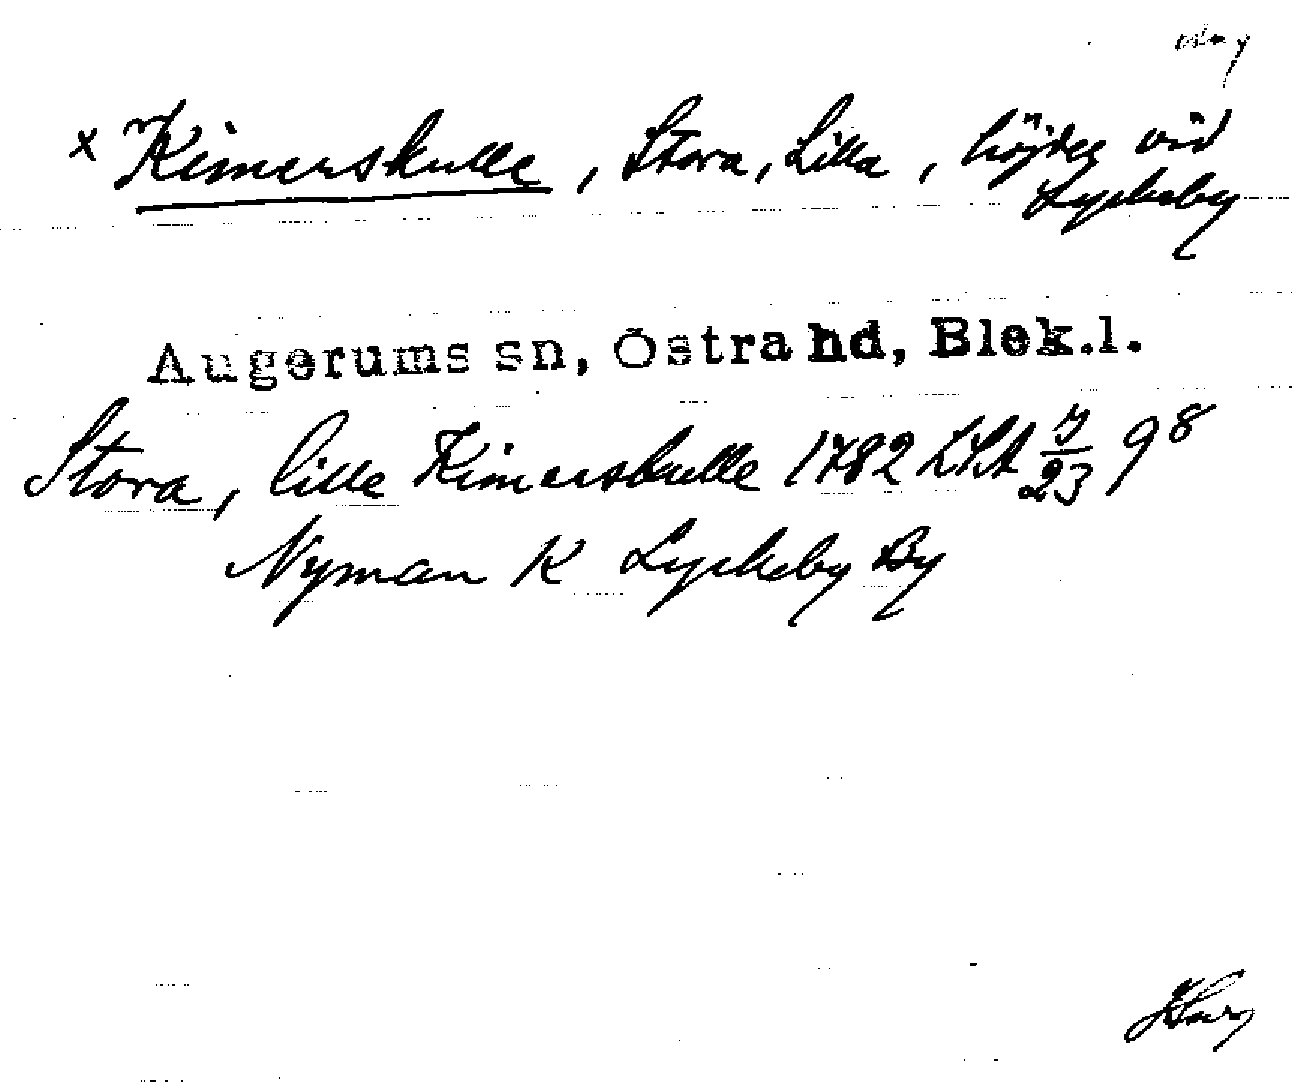 x Kimerskulle, Stora, Lilla, höjder vid
Lyckeby
Augerums sn, Östra hd, Blek.l.
Stora, lille Kimerskulle 1782 LSA 98
Nyman K Lyckeby By